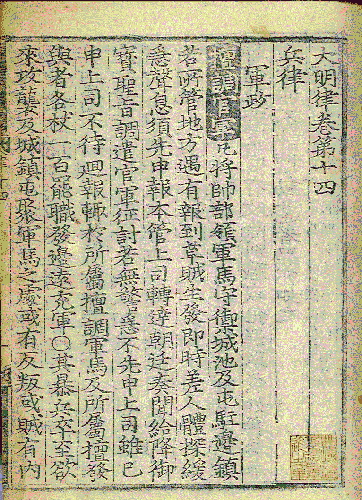 大明律卷第十四
兵律
軍政
擅調官軍 凡將帥部領軍馬守禦城池及屯駐邊鎮
若所管地方遇有報到草賊生發即時差人體探緩
急聲息須先申報本管上司轉達朝廷奏聞給降御
寶聖旨調遣官軍征討若無警急不先申上司雖已
申上司不待廻報輒於所屬擅調軍馬及所屬擅發
與者各杖一百罷職發邊遠充軍○其暴兵卒至欲
來攻襲及城鎮屯聚軍馬之處或有反叛或賊有內